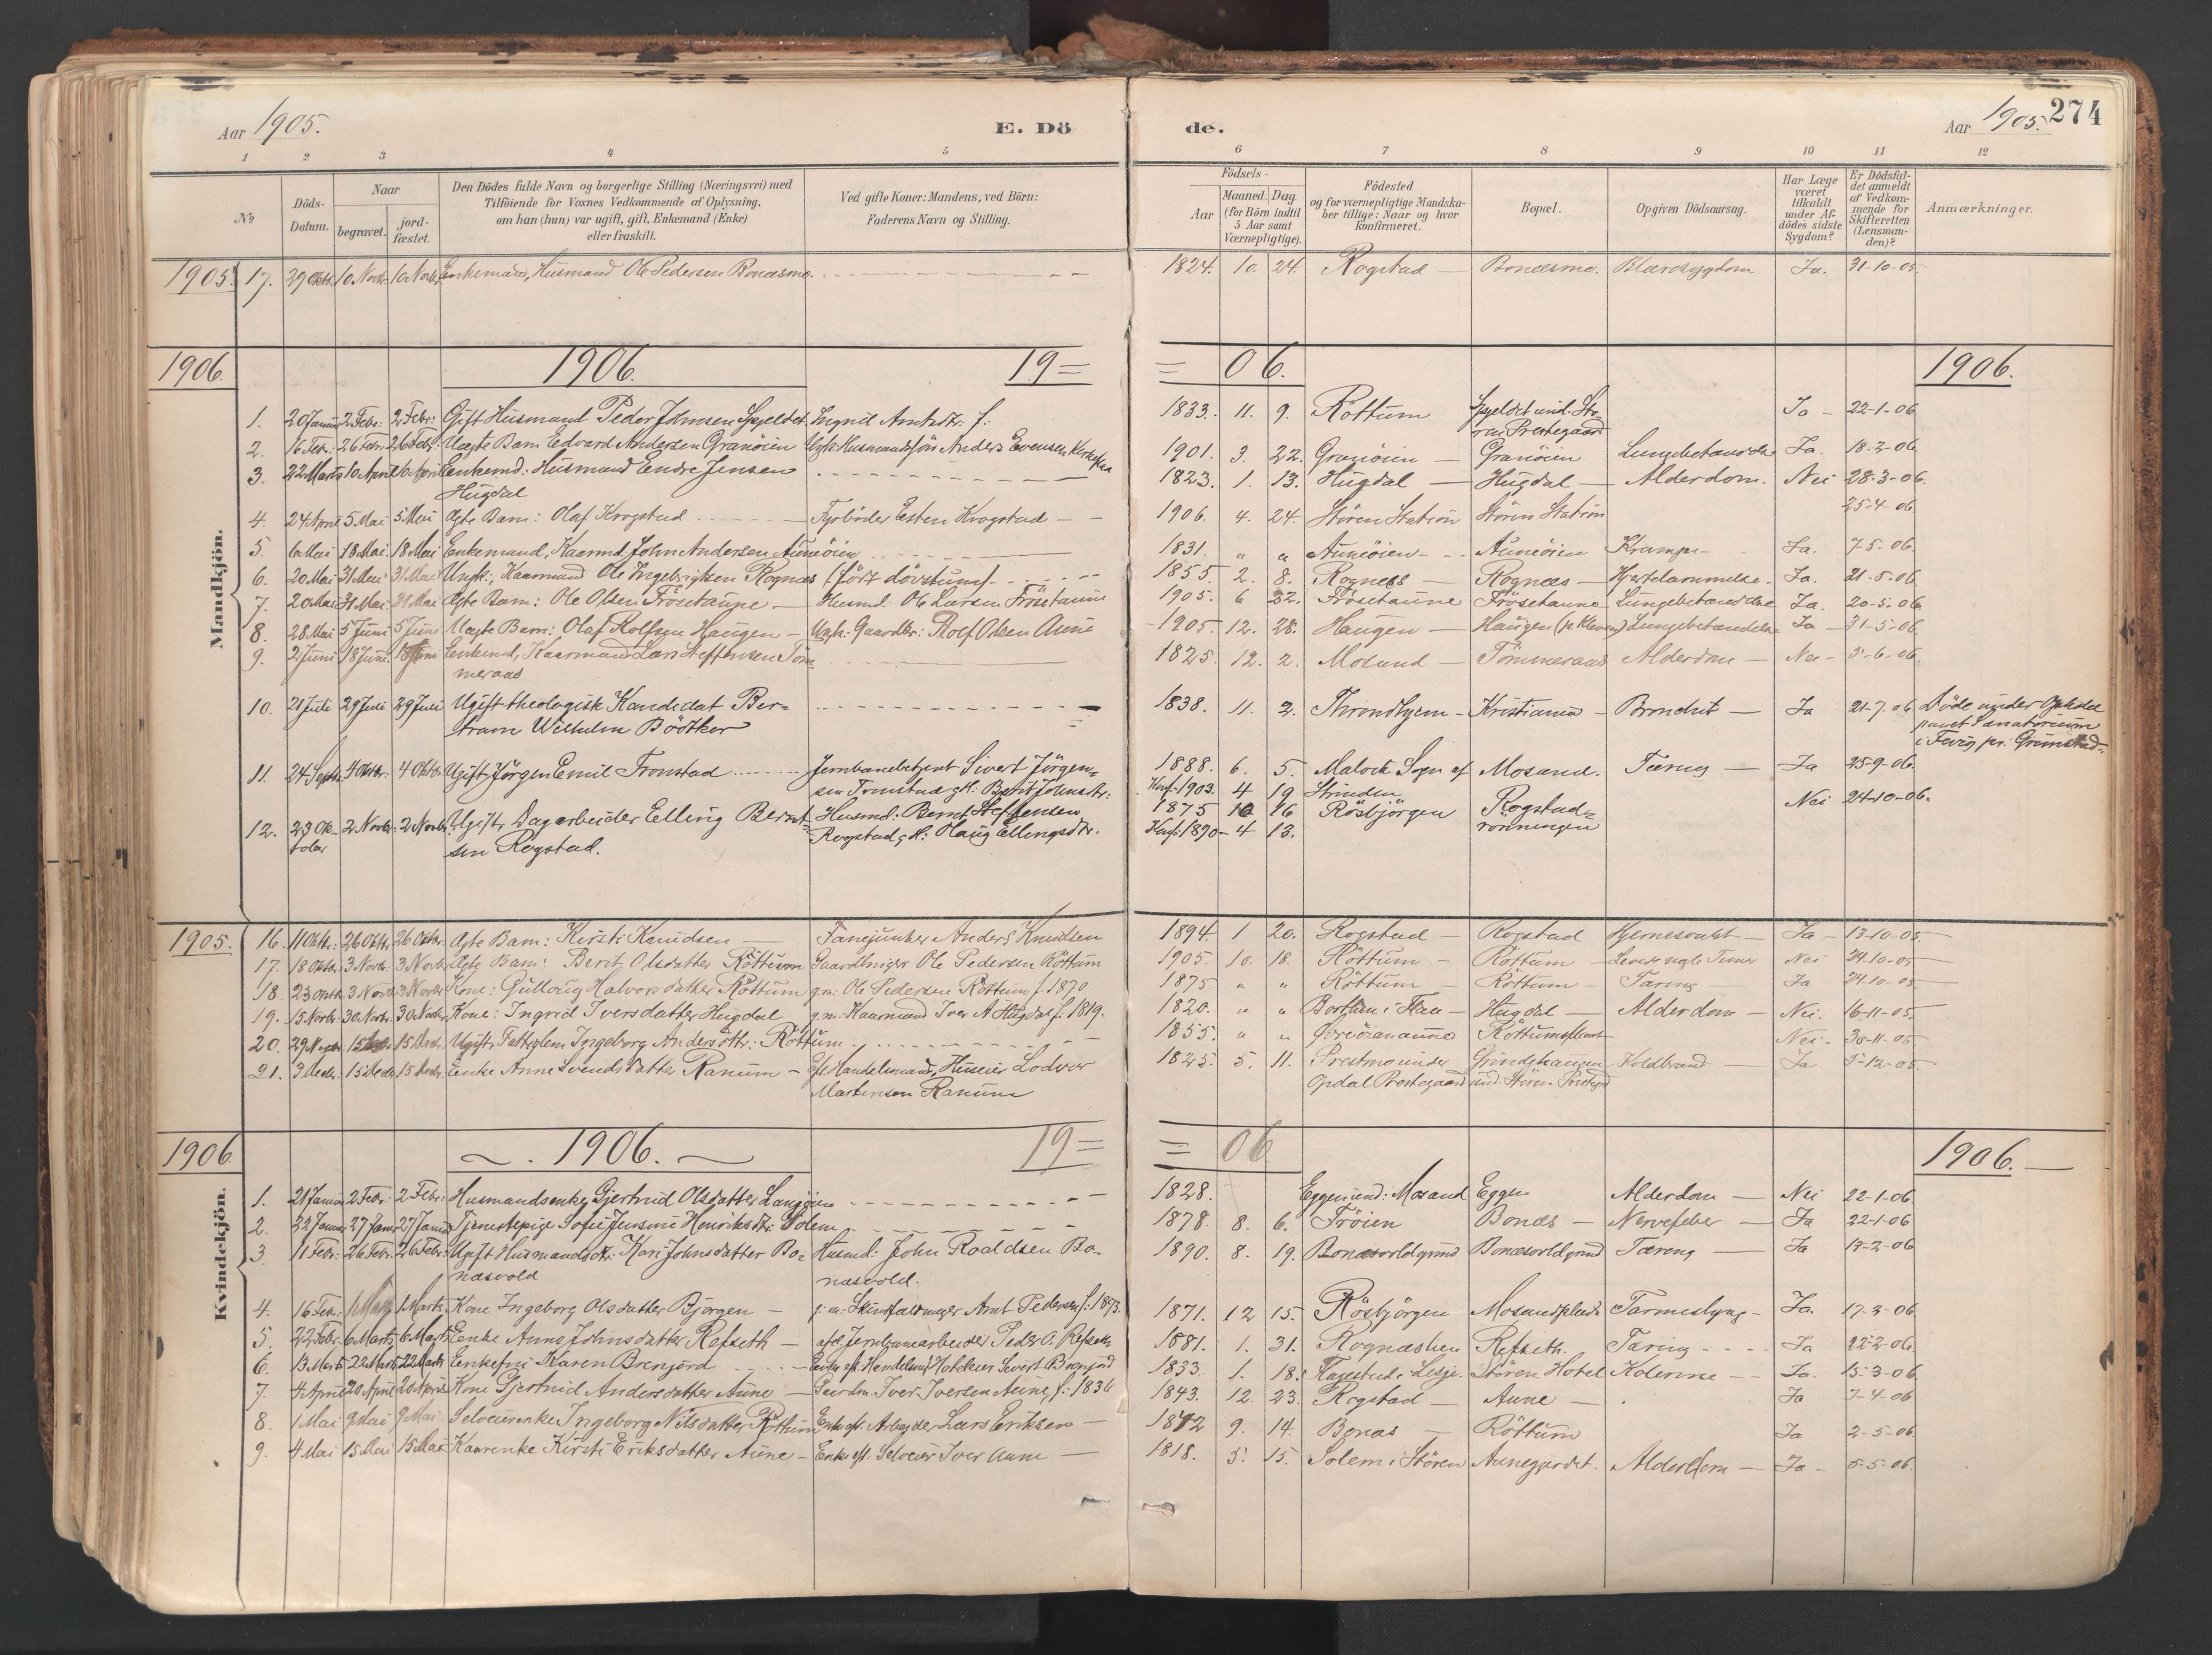 Aar 1905. E. Dö de. Aar 1905. 274
1 2 3 4 5 6 7 8 9 10 11 12
№ Döds-Datum. Naar begravet. jordfæstet. Den Dödes fulde Navn og borgerlige Stilling (Næringsvei) med Tilföiende for Voxnes Vedkommende af Oplysning, om han (hun) var ugift, gift, Enkemand (Enke) eller fraskilt. Ved gifte Koner: Mandens, ved Börn: Faderens Navn og Stilling. Födsels- Aar Maaned. Dag. (for Börn indtil 5 Aar samt Værnepligtige). Födested og for værnepligtige Mandskaber tillige: Naar og hvor konfirmeret. Bopæl. Opgiven Dödsaarsag. Har Læge været tilkaldt under Afdödes sidste Sygdom? Er Dödsfaldet anmeldt af Vedkommende for Skifteretten (Lensmanden)? Anmærkninger.
1905. 17. 29 Oktbr. 10 Novbr. 10 Novbr. Enkemand, Husmand Ole Pedersen Bonæsmo. 1824. 10. 24. Rogstad Bonæsmo. Blæresygdom Ja. 31-10-05.
1906. 1906. 19= = 06. 1906.
Mandkjön.
1. 20 Januar 2 Febr. 2 Febr: Gift Husmand Peder Johnsen Spjeldet Ingrid Arntsdtr. f: 1833. 11. 9. Röttum Spjeldet und. Stören Prestegaard Ja 22-1-06
2. 16 Febr. 26 Febr. 26 Febr. Uægte Barn Edvard Andersen Granöien Ungk: Husmandssön Anders Evensen 1901. 3. 22. Granöien Granöien Lungebetændelse Ja. 18-2-06
3. 22 Marts 10 April 10 April Enkemd: Husmand Endre Jensen Hugdal 1823. 1. 13. Hugdal Hugdal Alderdom. Nei 28-3-06.
4. 24 April 5 Mai 5 Mai Ægte Barn: Olaf Krogstad Fyrböder Esten Krogstad 1906. 4. 24. Stören Station Stören Station 25-4-06.
5. 6 Mai 18 Mai 18 Mai Enkemand, Kaarmd. John Andersen Auneöien 1831. „ „ Auneöien Auneöien Krampe Ja. 7-5-06.
6. 20 Mai 31 Mai 31 Mai Ungk:, Kaarmand Ole Ingebrigtsen Rognæs (född dövstum). 1855. 2. 8. Rognæs Rognæs Hjertelammelse. Ja. 21-5-06.
7. 20 Mai 31 Mai 31 Mai Ægte Barn: Ole Olsen Frösetaune Husmd: Ole Larsen Frösetaune 1905. 6 22. Frösetaune Frösetaune Lungebetændelse Ja. 20-5-06.
8. 28 Mai 5 Juni 5 Juni Uægte Barn: Olaf Rolfsen Haugen Ungk: Gaardbr: Rolf Olsen Aune 1905. 12. 28. Haugen Haugen Lungebetændelse Ja 31-5-06.
9. 2 Juni 18 Juni 18 Juni Enkemd, Kaarmand Lars Steffensen Tömmeraas 1825. 12. 2. Mosand Tömmeraas Alderdom Nei 5-6-06.
10. 21 Juli 29 Juli 29 Juli Ugift theologisk Kandidat Bertram Wilhelm Bödtker 1838. 11. 2. Throndhjem Kristiania Bronchit Ja 21-7-06 Döde under Ophold paa et Sanatorium i Fevig pr. Grimstad.
11. 24 Septbr. 4 Oktbr. 4 Oktbr. Ugift Jörgen Emil Fronstad Jernbanebetjent Sivert Jörgensen Fronstad g. H: Berit Johnsdtr: 1888. 6. 5. Konf: 1903. 4 19 Malvik Sogn af Strinden Mosand. Tæring Ja 25-9-06.
12. 23 Oktober 2 Novbr. 2 Novbr. Ugift Dagarbeider Elling Berntsen Rogstad. Husmd: Bernt Steffensen Rogstad, g. H: Haug Ellingsdtr. 1875 10 16 Konf: 1890 4 13. Rösbjörgen Rogstadrönningen Nei 24-10-06.
1905. 16. 11 Oktbr: 26 Oktbr 26 Oktbr Ægte Barn: Kirsti Knudsen Fanejunker Anders Knudsen 1894. 1 20. Rogstad Rogstad Hjernesvulst Ja 13-10-05.
17. 18 Oktbr. 3 Novbr. 3 Novbr Ægte Barn: Berit Olsdatter Röttum Gaardbruger Ole Pedersen Röttum 1905. 10. 18. Röttum Röttum Nei 24-10-05
18. 23 Oktbr. 3 Novbr 3 Novbr Kone: Gullaug Halvorsdatter Röttum g.m: Ole Pedersen Röttum f. 1870 1875. „ „ Röttum Röttum Tæring Ja 24-10-05.
19. 15 Novbr. 30 Novbr. 30 Novbr. Kone: Ingrid Iversdatter Hugdal g.m: Kaarmand Iver A Hugdal f. 1819. 1820. „ „ Bortten i Flaa Hugdal Alderdom Nei. 16-11-05.
20. 29 Novbr. 15 Decbr. 15 Decbr. Ugift, Fattiglem Ingeborg Andersdtr: Röttum 1855. „ „ Nei 30-11-05
21. 3 Decbr. 15 Decbr. 15 Decbr. Enke Anne Svendsdatter Ranum Eft. Handelsmand, Huseier Lodvar Martinsen Ranum 1825. 5. 11. Prestmo under Opdal Prestegaard Grindshaugen und. Stören Prestegd Koldbrand Ja 5-12-05.
1906 1906. 19= = 06 1906.
Kvindekjön.
1. 21 Januar 2 Febr. 2 Febr: Husmandsenke Gjertrud Olsdatter Langöien 1828. Eggen und: Mosand Eggen Alderdom Nei 22-1-06.
2. 22 Januar 27 Januar 27 Januar Tjenestepige Sofie Jensine Henriksdtr: Solem 1878. 8. 6. Fröien Bonæs Nervefeber Ja 22-1-06
3 11 Febr: 26 Febr. 26 Febr. Ugift Husmandsdtr. Kari Johnsdatter Bonæsvold Husmd: John Roaldsen Bonæsvold. 1890. 8. 19. Bonæsvoldgrind Bonæsvoldgrind Tæring Ja 17-2-06
4. 16 Febr. 1 Marts 1 Marts Kone Ingeborg Olsdatter Bjørgen g: m: Skindfeldmager Arnt Pedersen f: 1873. 1871. 12 15. Rösbjörgen Mosandplads Tarmeslyng Ja. 17-3-06
5. 22 Febr. 6 Marts 6 Marts Enke Anne Johnsdatter Refseth aft. Jernbanearbeider Peder O. Refseth 1881. 1. 31. Rognæslien Refseth. Tæring Ja 22-2-06.
6. 13 Marts 22 Marts 22 Marts Enkefru Karen Brenjord Enke eft. Handelsmd, Hoteleier Sivert Brenjord 1833 1. 18. Stören Hotel Kolerine Ja. 15-3-06
7. 4 April 20 April 20 April Kone Gjertrud Andersdatter Aune Gaardm. Iver Iversen Aune, f: 1836 1843. 12. 23. Rogstad Aune Ja 7-4-06
8. 1 Mai 9 Mai 9 Mai Selveierenke Ingeborg Nilsdatter Röttum Enke eft. Arbeider Lars Eriksen 1842 9. 14. Bonæs Röttum Ja 2-5-06.
9. 4 Mai 15 Mai 15 Mai Kaarenke Kirsti Eriksdatter Aune Enke eft: Selveier Iver Aune 1818. 5. 15. Solem i Stören Aunegjerdet. Alderdom Ja 5-5-06.